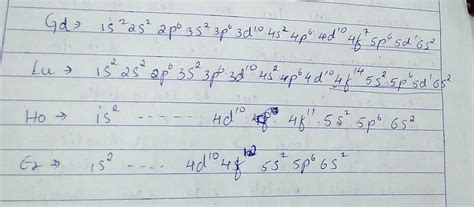 Gd → 1s² 2s² 2p⁶ 3s² 3p⁶ 3d¹⁰ 4s² 4p⁶ 4d¹⁰ 4f⁷ 5p⁶ 5d¹ 6s²
Lu → 1s² 2s² 2p⁶ 3s² 3p⁶ 3d¹⁰ 4s² 4p⁶ 4d¹⁰ 4f¹⁴ 5s² 5p⁶ 5d¹ 6s²
Ho → 1s² ------- 4d¹⁰ 4f¹¹ 5s² 5p⁶ 6s²
Er → 1s² ---- 4d¹⁰ 4f¹² 5s² 5p⁶ 6s²